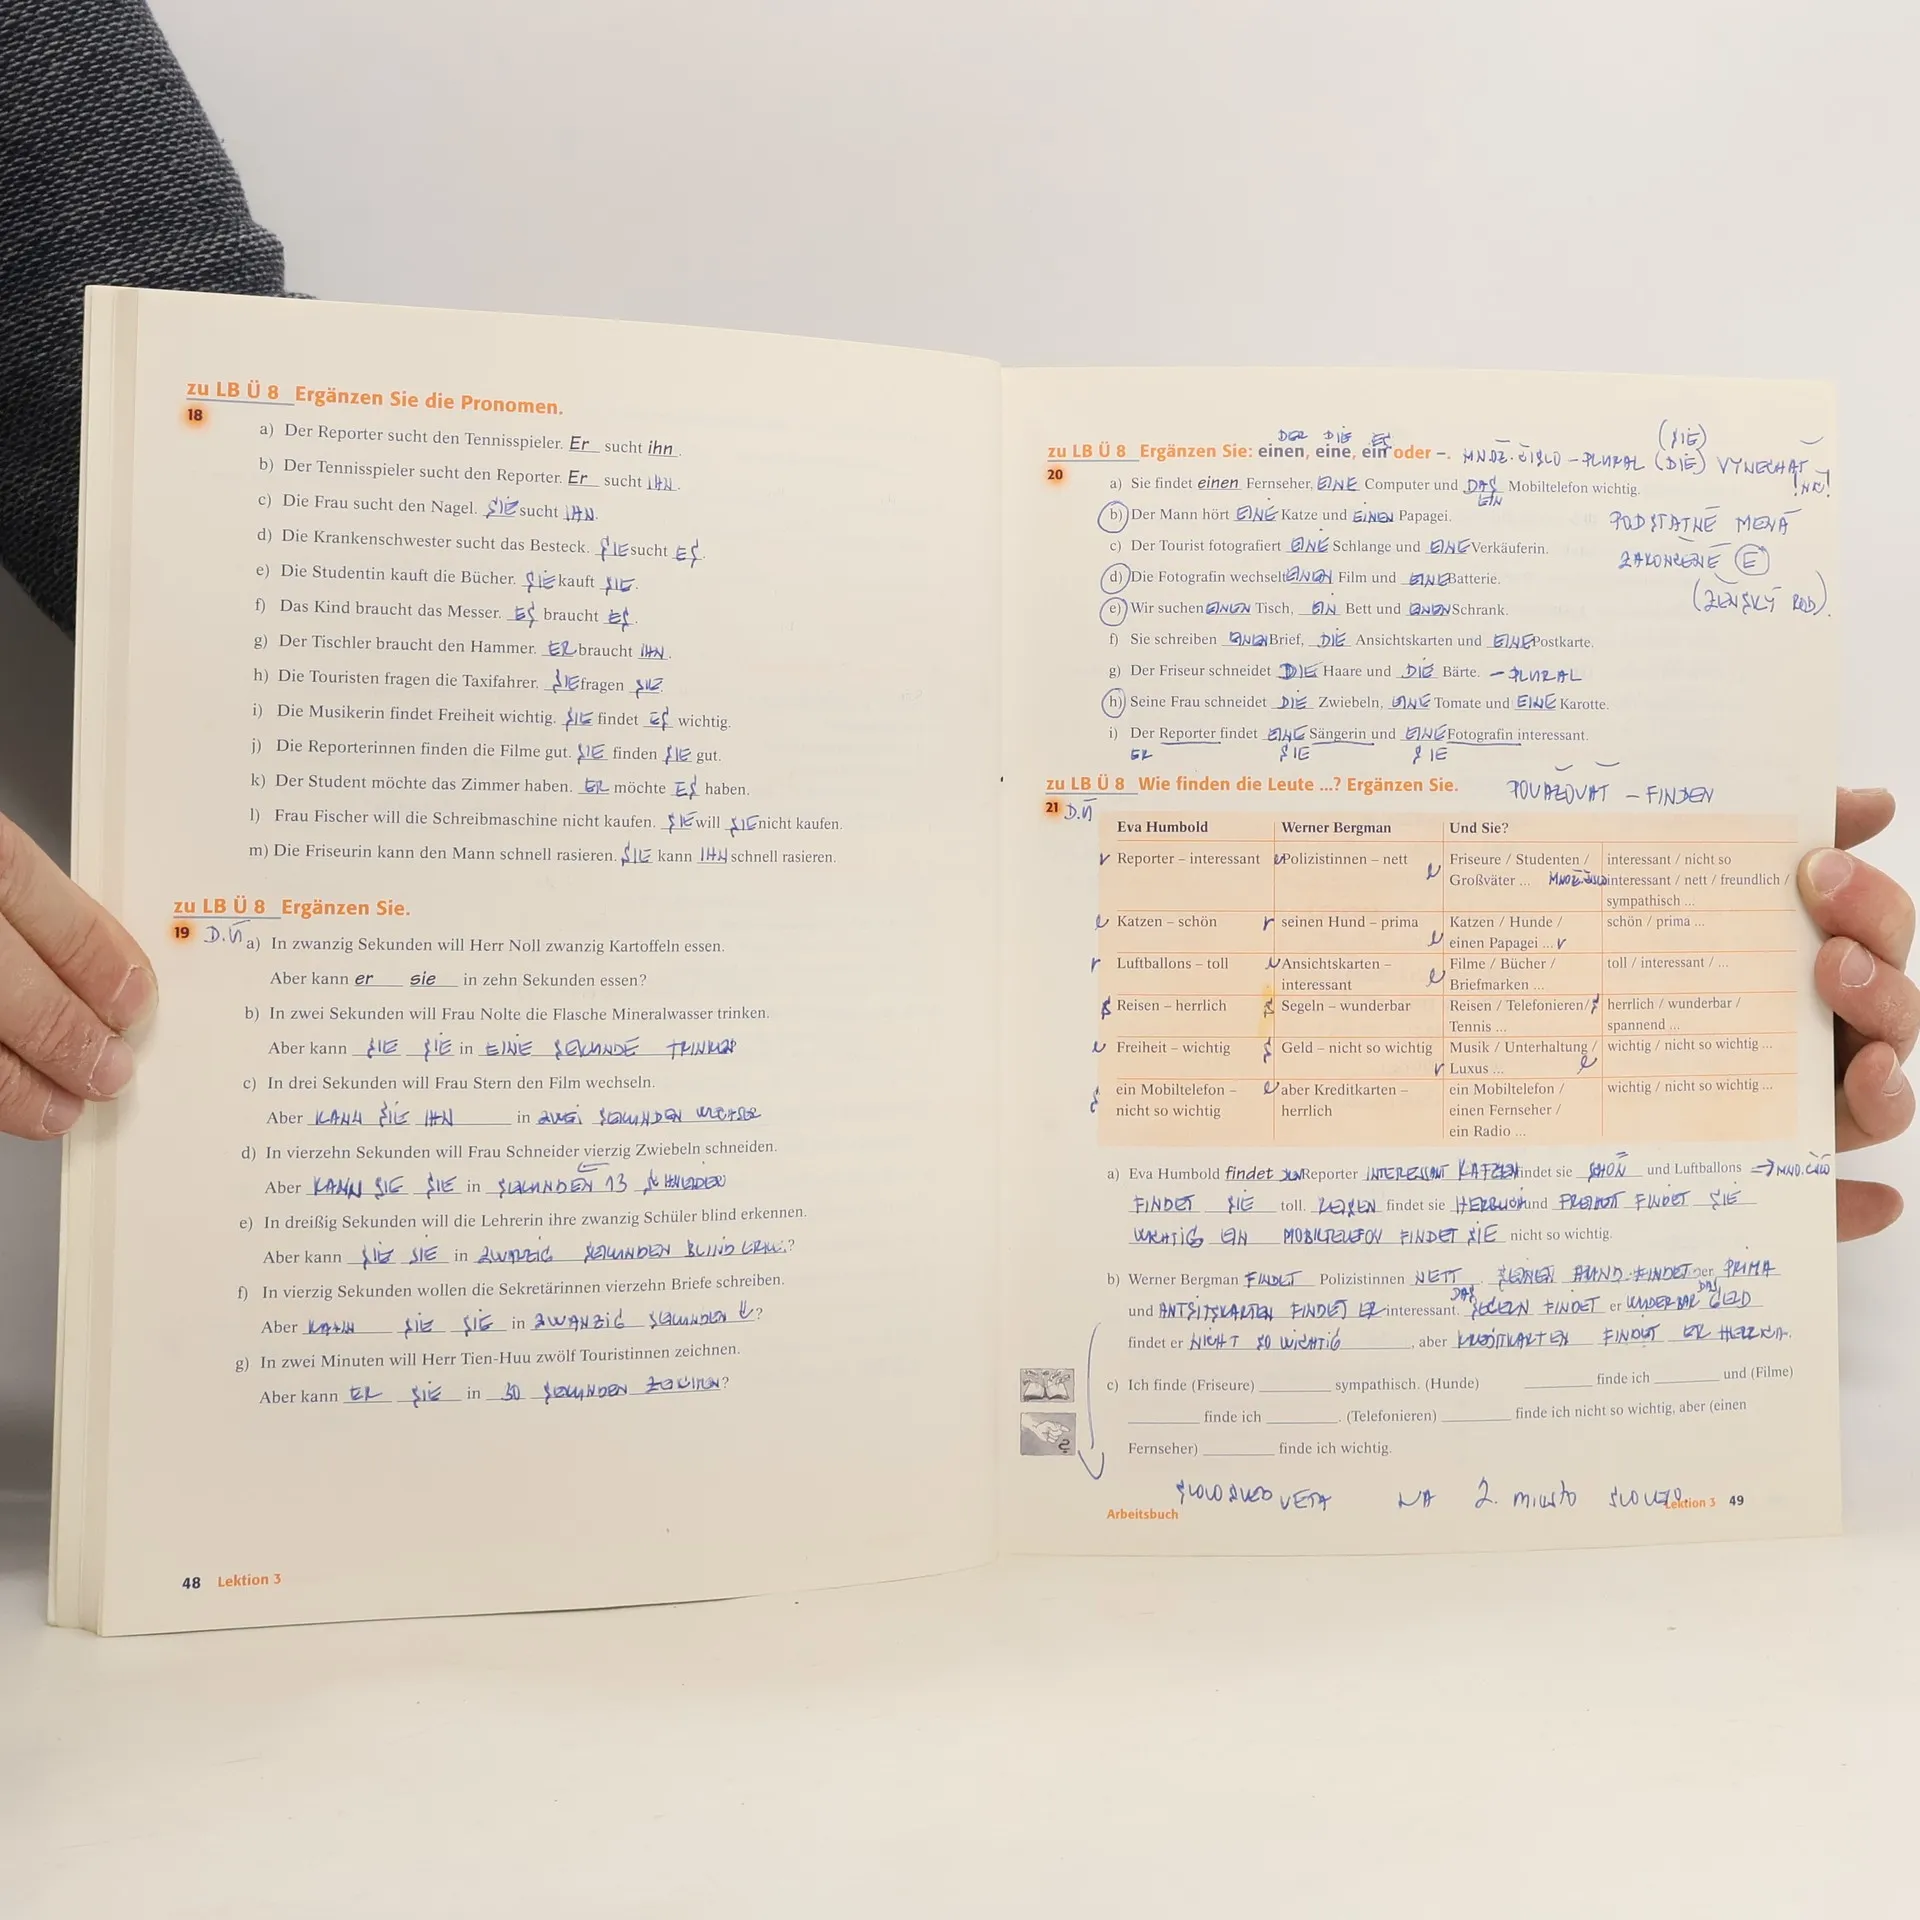 zu LB Ü 8 Ergänzen Sie die Pronomen.
18
a) Der Reporter sucht den Tennisspieler. Er sucht ihn.
b) Der Tennisspieler sucht den Reporter. Er sucht IHN.
c) Die Frau sucht den Nagel. SIE sucht IHN.
d) Die Krankenschwester sucht das Besteck. SIE sucht ES.
e) Die Studentin kauft die Bücher. SIE kauft SIE.
f) Das Kind braucht das Messer. ES braucht ES.
g) Der Tischler braucht den Hammer. ER braucht IHN.
h) Die Touristen fragen die Taxifahrer. SIE fragen SIE.
i) Die Musikerin findet Freiheit wichtig. SIE findet ES wichtig.
j) Die Reporterinnen finden die Filme gut. SIE finden SIE gut.
k) Der Student möchte das Zimmer haben. ER möchte ES haben.
l) Frau Fischer will die Schreibmaschine nicht kaufen. SIE will SIE nicht kaufen.
m) Die Friseurin kann den Mann schnell rasieren. SIE kann IHN schnell rasieren.
zu LB Ü 8 Ergänzen Sie.
19 D.Ú
a) In zwanzig Sekunden will Herr Noll zwanzig Kartoffeln essen.
Aber kann er sie in zehn Sekunden essen?
b) In zwei Sekunden will Frau Nolte die Flasche Mineralwasser trinken.
Aber kann SIE SIE in EINE SEKUNDE TRINKEN
c) In drei Sekunden will Frau Stern den Film wechseln.
Aber KANN SIE IHN in ZWEI SEKUNDEN
d) In vierzehn Sekunden will Frau Schneider vierzig Zwiebeln schneiden.
Aber KANN SIE SIE in SEKUNDEN 13 SCHNEIDEN
e) In dreißig Sekunden will die Lehrerin ihre zwanzig Schüler blind erkennen.
Aber kann SIE SIE in ZWANZIG SEKUNDEN BLIND ?
f) In vierzig Sekunden wollen die Sekretärinnen vierzehn Briefe schreiben.
Aber KANN SIE SIE in ZWANZIG SEKUNDEN ?
g) In zwei Minuten will Herr Tien-Huu zwölf Touristinnen zeichnen.
Aber kann ER SIE in 30 SEKUNDEN ?
48 Lektion 3
DER DIE ES
zu LB Ü 8 Ergänzen Sie: einen, eine, ein oder –. MNOZ. ČISLO – PLURAL (SIE) (DIE) VYNECHAŤ
20
a) Sie findet einen Fernseher, EINE Computer und DAS Mobiltelefon wichtig.
EIN
b) Der Mann hört EINE Katze und EINEN Papagei.
PODSTATNÉ MENÁ
c) Der Tourist fotografiert EINE Schlange und EINE Verkäuferin.
ZAKONČENÉ E
d) Die Fotografin wechselt EINEN Film und EINE Batterie.
(ŽENSKÝ ROD).
e) Wir suchen EINEN Tisch, EIN Bett und EINEN Schrank.
f) Sie schreiben EINEN Brief, DIE Ansichtskarten und EINE Postkarte.
g) Der Friseur schneidet DIE Haare und DIE Bärte. – PLURAL
h) Seine Frau schneidet DIE Zwiebeln, EINE Tomate und EINE Karotte.
i) Der Reporter findet EINE Sängerin und EINE Fotografin interessant.
ER SIE SIE
zu LB Ü 8 Wie finden die Leute ...? Ergänzen Sie. POVAŽOVAŤ – FINDEN
21 D.Ú
Eva Humbold Werner Bergman Und Sie?
Reporter – interessant Polizistinnen – nett Friseure / Studenten / interessant / nicht so
Großväter ... interessant / nett / freundlich /
sympathisch ...
Katzen – schön seinen Hund – prima Katzen / Hunde / schön / prima ...
einen Papagei ...
Luftballons – toll Ansichtskarten – Filme / Bücher / toll / interessant / ...
interessant Briefmarken ...
Reisen – herrlich Segeln – wunderbar Reisen / Telefonieren/ herrlich / wunderbar /
Tennis ... spannend ...
Freiheit – wichtig Geld – nicht so wichtig Musik / Unterhaltung / wichtig / nicht so wichtig ...
Luxus ...
ein Mobiltelefon – aber Kreditkarten – ein Mobiltelefon / wichtig / nicht so wichtig ...
nicht so wichtig herrlich einen Fernseher /
ein Radio ...
a) Eva Humbold findet DEN Reporter INTERESSANT KATZEN findet sie SCHÖN und Luftballons
FINDET SIE toll. REISEN findet sie HERRLICH und FREIHEIT FINDET SIE
WICHTIG EIN MOBILTELEFON FINDET SIE nicht so wichtig.
b) Werner Bergman FINDET Polizistinnen NETT. SEINEN HUND FINDET er PRIMA
DAS DAS
und ANTSITSKARTEN FINDET ER interessant. SEGELN FINDET er WUNDERBAR GELD
findet er NICHT SO WICHTIG, aber KREDITKARTEN FINDET ER
c) Ich finde (Friseure) ________ sympathisch. (Hunde) ________ finde ich ________ und (Filme)
________ finde ich ________. (Telefonieren) ________ finde ich nicht so wichtig, aber (einen
Fernseher) ________ finde ich wichtig.
VETA NA 2. miesto SLOVESO
Arbeitsbuch Lektion 3 49